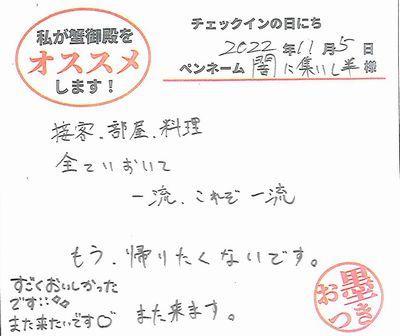 私が蟹御殿を
オススメ
します!
チェックインの日にち
2022年11月5日
ペンネーム 闇に集いし羊様
接客、部屋、料理
全ていおいて
一流、これぞ一流
もう、帰りたくないです。
また来ます。
すごくおいしかった
です
また来たいです♡
お墨つき